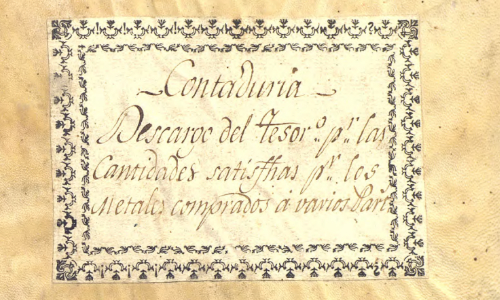 Contaduria
Descargo del Tesor.º p.r las
Cantidades satisfhas p.r los
Metales comprados á varios Part.s